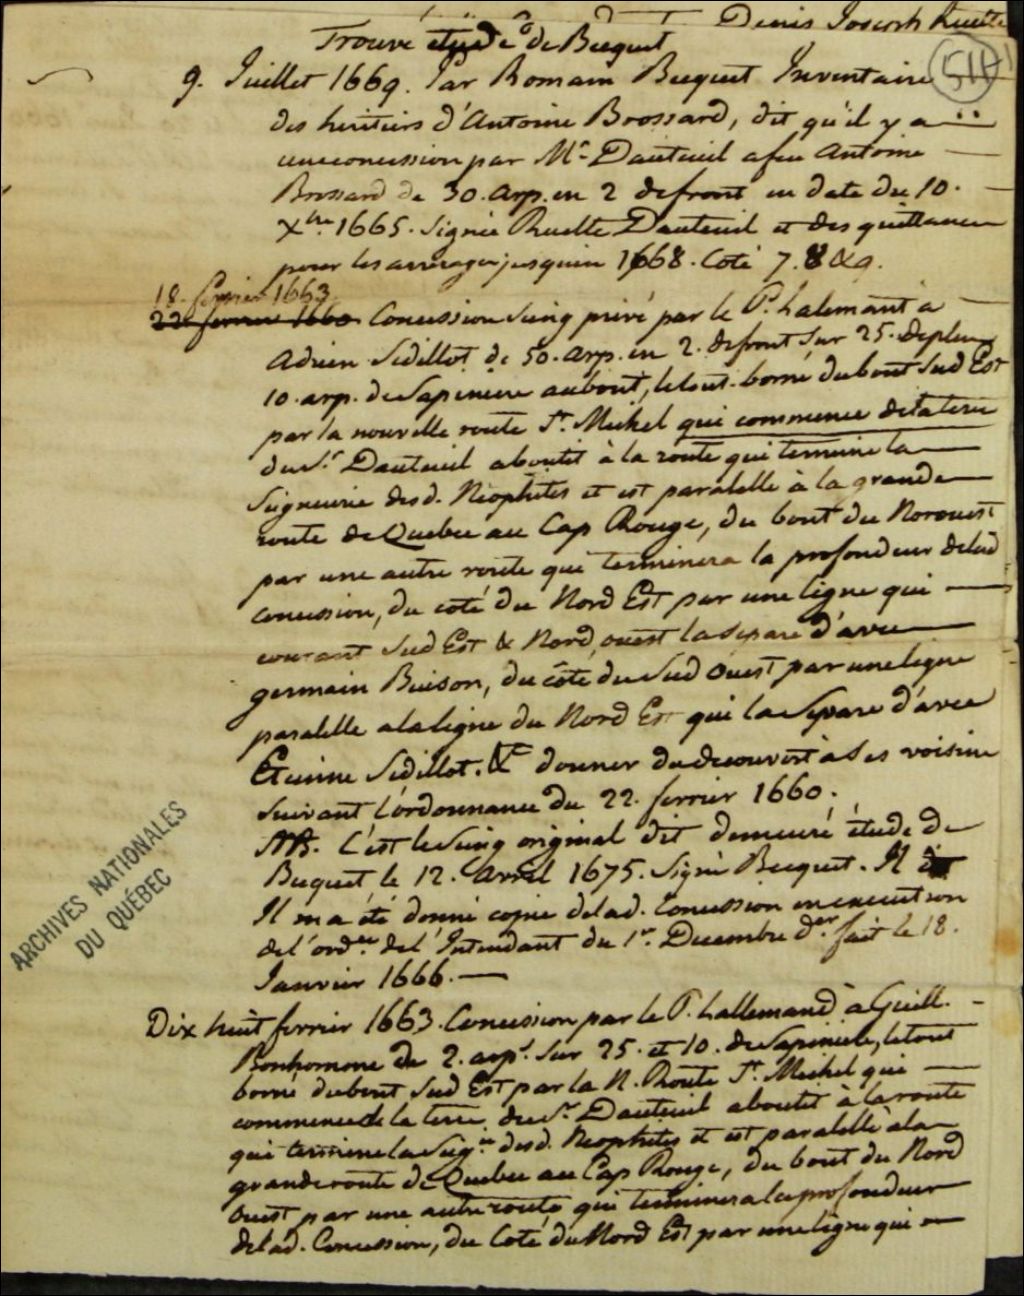 Denis Joseph Ruette
Trouvé étude de Becquet
511
9. Juillet 1669. Par Romain Becquet Inventaire
des heritiers d'Antoine Brossard, dit qu'il y a
une concession par Mr. Dauteuil a feu Antoine
Brossard de 30. arp. en 2 de front en date du 10.
Xbre. 1665. Signée Ruette Dauteuil et des quittances
pour les arrerages jusquien 1668. Coté 7. 8 & 9.
18. fevrier 1663
22 fevrier 1660 Concession Seing privé par le P. Lalemant a
Adrien Sedillot de 50. arp. en 2. de front sur 25. de plus
10. arp. de Sapiniere au bout, le tout borné du bout Sud Est
par la nouvelle route St. Michel qui commence de la terre
du Sr. Dauteuil aboutit à la route qui termine la
Seigneurie desd. Néophites et est paralelle à la grande
route de Quebec au Cap Rouge, du bout du Norouest
par une autre route qui terminera la profondeur de lad
concession, du coté du Nord Est par une ligne qui
courant Sud Est & Nord ouest la separe d'avec
germain Buison, du côté du Sud Ouest par une ligne
paralelle a la ligne du Nord Est qui la Separe d'avec
Etienne Sedillot. &c donner du decouvert à Ses voisins
Suivant L'ordonnance du 22. fevrier 1660.
NB. C'est le Seing original dit demeuré étude de
Becquet le 12. Avril 1675. Signé Becquet. Il
Il m'a été donné copie de lad. Concession en execution
de l'ordce. de l'Intendant du 1er. Decembre der. fait le 18.
Janvier 1666.
Dix huit fevrier 1663. Concession par le P. Lallemand à Guill.
Bonhomme de 2. arps. sur 25. et 10. de Sapiniere, le tout
borné du bout Sud Est par la N. Route St. Michel qui
commence de la terre du Sr. Dauteuil aboutit à la route
qui termine la Seigrie. desd. Neophites et est paralelle à la
grande route de Quebec au Cap Rouge, du bout du Nord
Ouest par une autre route qui terminera la profondeur
de lad. Concession, du Coté du Nord Est par une ligne qui
ARCHIVES NATIONALES
DU QUÉBEC